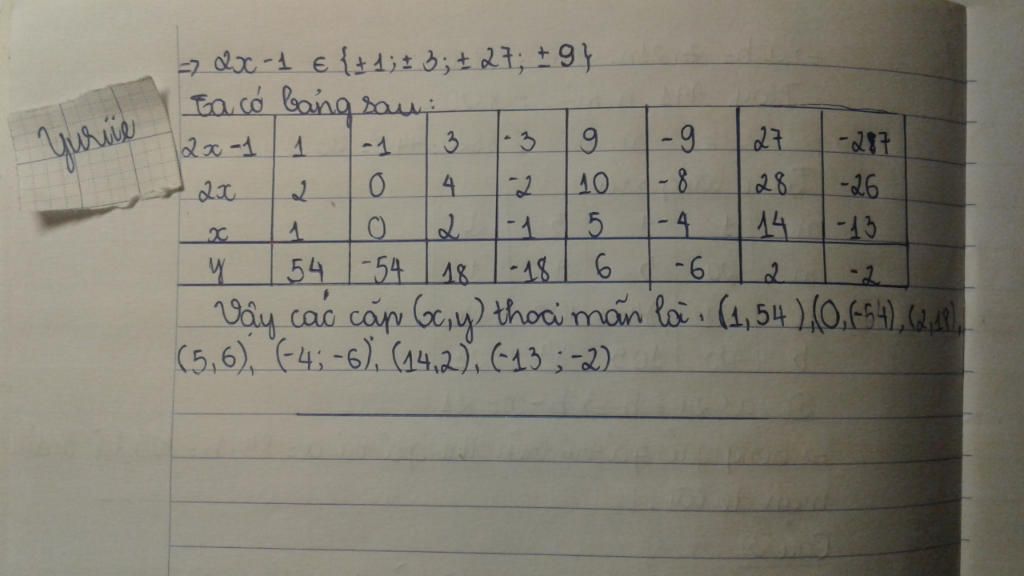 => 2x-1 ∈ {±1; ±3; ±27; ±9}
Ta có bảng sau:
Yuriie
2x-1 1 -1 3 -3 9 -9 27 -27
2x 2 0 4 -2 10 -8 28 -26
x 1 0 2 -1 5 -4 14 -13
y 54 -54 18 -18 6 -6 2 -2
Vậy các cặp (x,y) thoả mãn là: (1,54),(0,(-54),(2,18),
(5,6), (-4; -6), (14,2), (-13; -2)